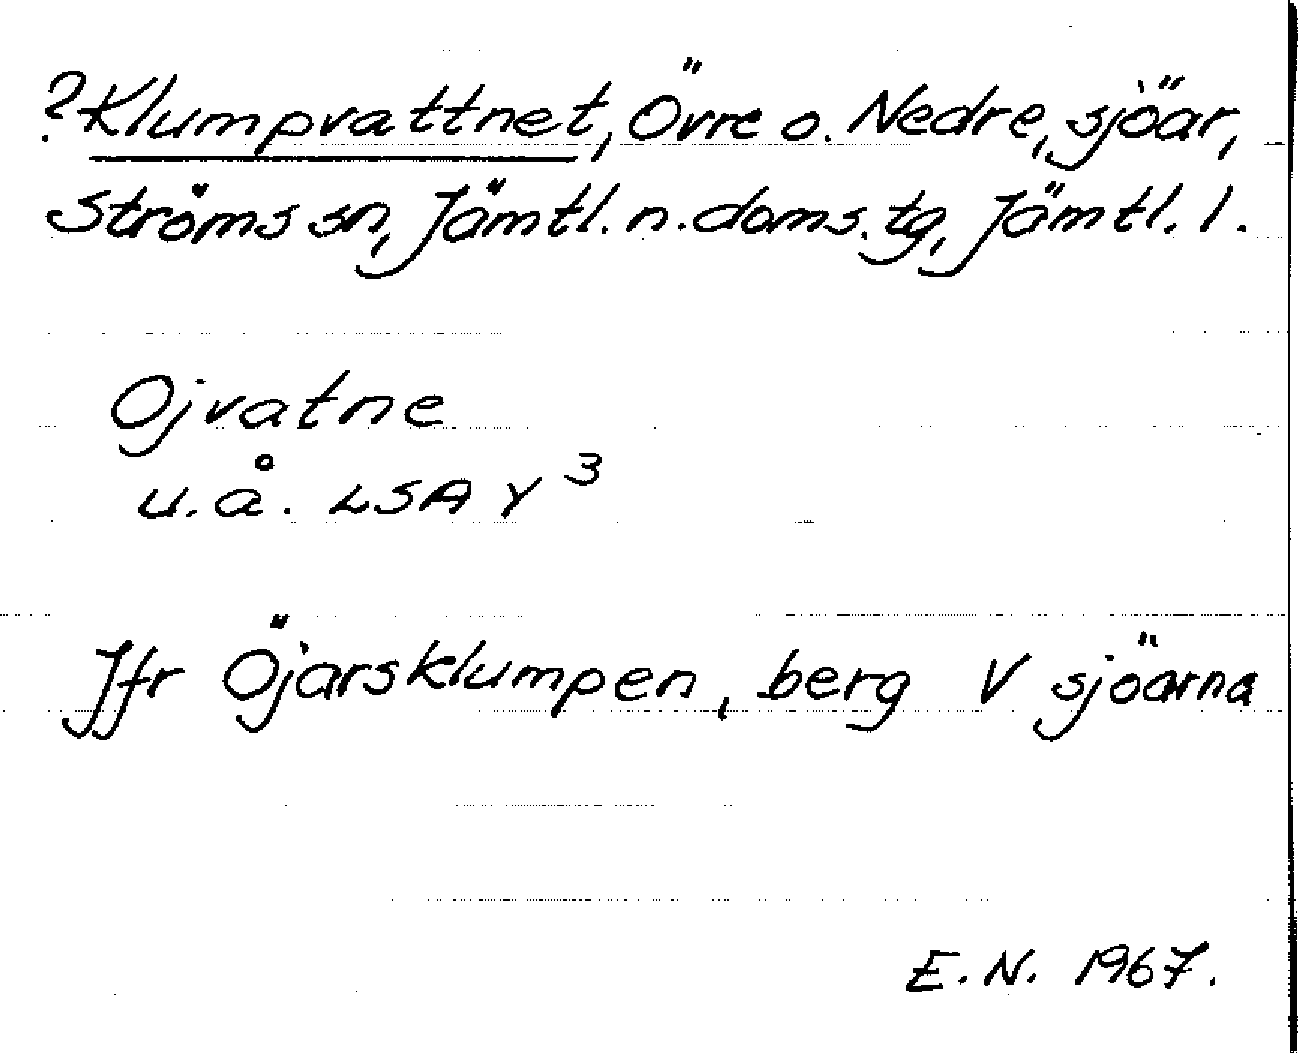 ?Klumpvattnet, Övre o. Nedre, sjöar,
Ströms sn, Jämtl. n. doms. tg, Jämtl. l.
Ojvatne
u.å. LSA Y 3
Jfr Öjarsklumpen, berg V sjöarna
E.N. 1967.